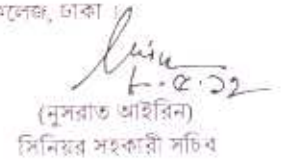 কলেজ, ঢাকা।
৮.৫.১২
(নুসরাত আইরিন)
সিনিয়র সহকারী সচিব